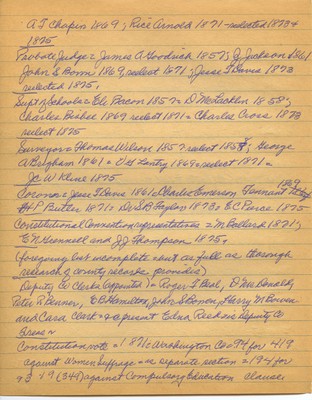 A T Chapin 1869; Rice Arnold 1871 - reelected 1873 &
1875
Probate Judge = James A Goodrich 1857; J Jackson 1861
John S Boon 1869, reelect 1871; Jesse T Davis 1873
reelected 1875.
Supt of Schools = Eli Bacon 1857 = D McLacklin 1858;
Charles Bisbee 1869 reelect 1871 = Charles Cross 1873
reelect 1875
Surveyor = Thomas Wilson 1857 reelect 1858; George
A Bingham 1861 = V H Lantry 1869 = reelect 1871 =
J C W Kline 1875
Coroner = Jesse T Davis 1861 = Charles Emerson 1869
H P Butler 1871 = Dr S B Taylor 1873 = E C Purce 1875
Constitutional Convention representatives = M Pollard 1871;
E N Hennett and J J Thompson 1875.
(foregoing list incomplete = but as full as thorough
research of county records provides)
Deputy Co Clerks (appointed) = Roger T Beal, D McDonald,
Peter P Benner, E C Hamilton, John S Bonar, Harry McEowen
and Cara Clerk = at present Edna Deputy Co
Constitution vote = 1871 = Washington Co = 94 for 419
against Women Suffrage = as separate section = 194 for
(344) against Compulsory Education clause